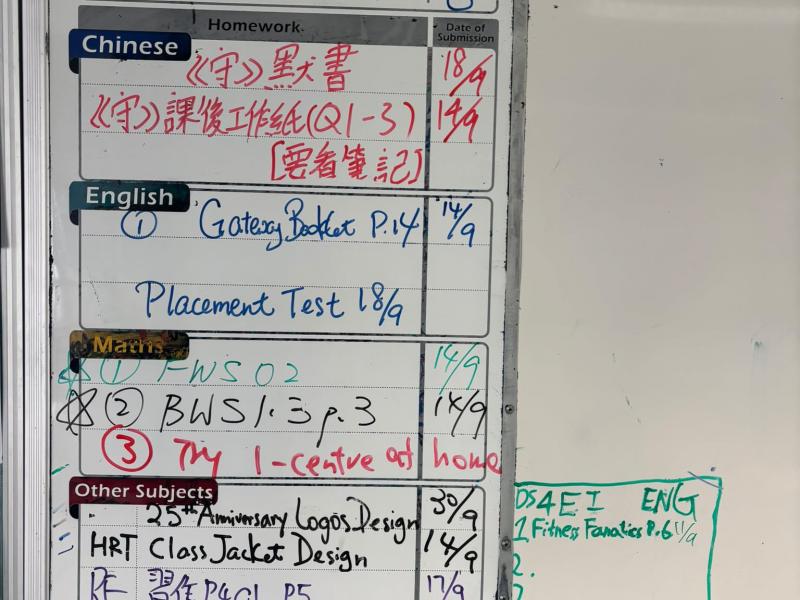 Homework Date of Submission
Chinese
《守》默書 18/9
《守》課後工作紙(Q1-3) 14/9
[要看筆記]
English
① Gateway Booklet P.14 14/9
Placement Test 18/9
Maths
☆ ① FWS 02 14/9
☆ ② BWS 1.3 p.3 14/9
③ Try I-centre at home
Other Subjects
25th Anniversary Logos Design 30/9
HRT Class Jacket Design 14/9
RE 習作P4 P5 17/9
DS4E I ENG
1 Fitness Fanatics P.6 11/9
2.